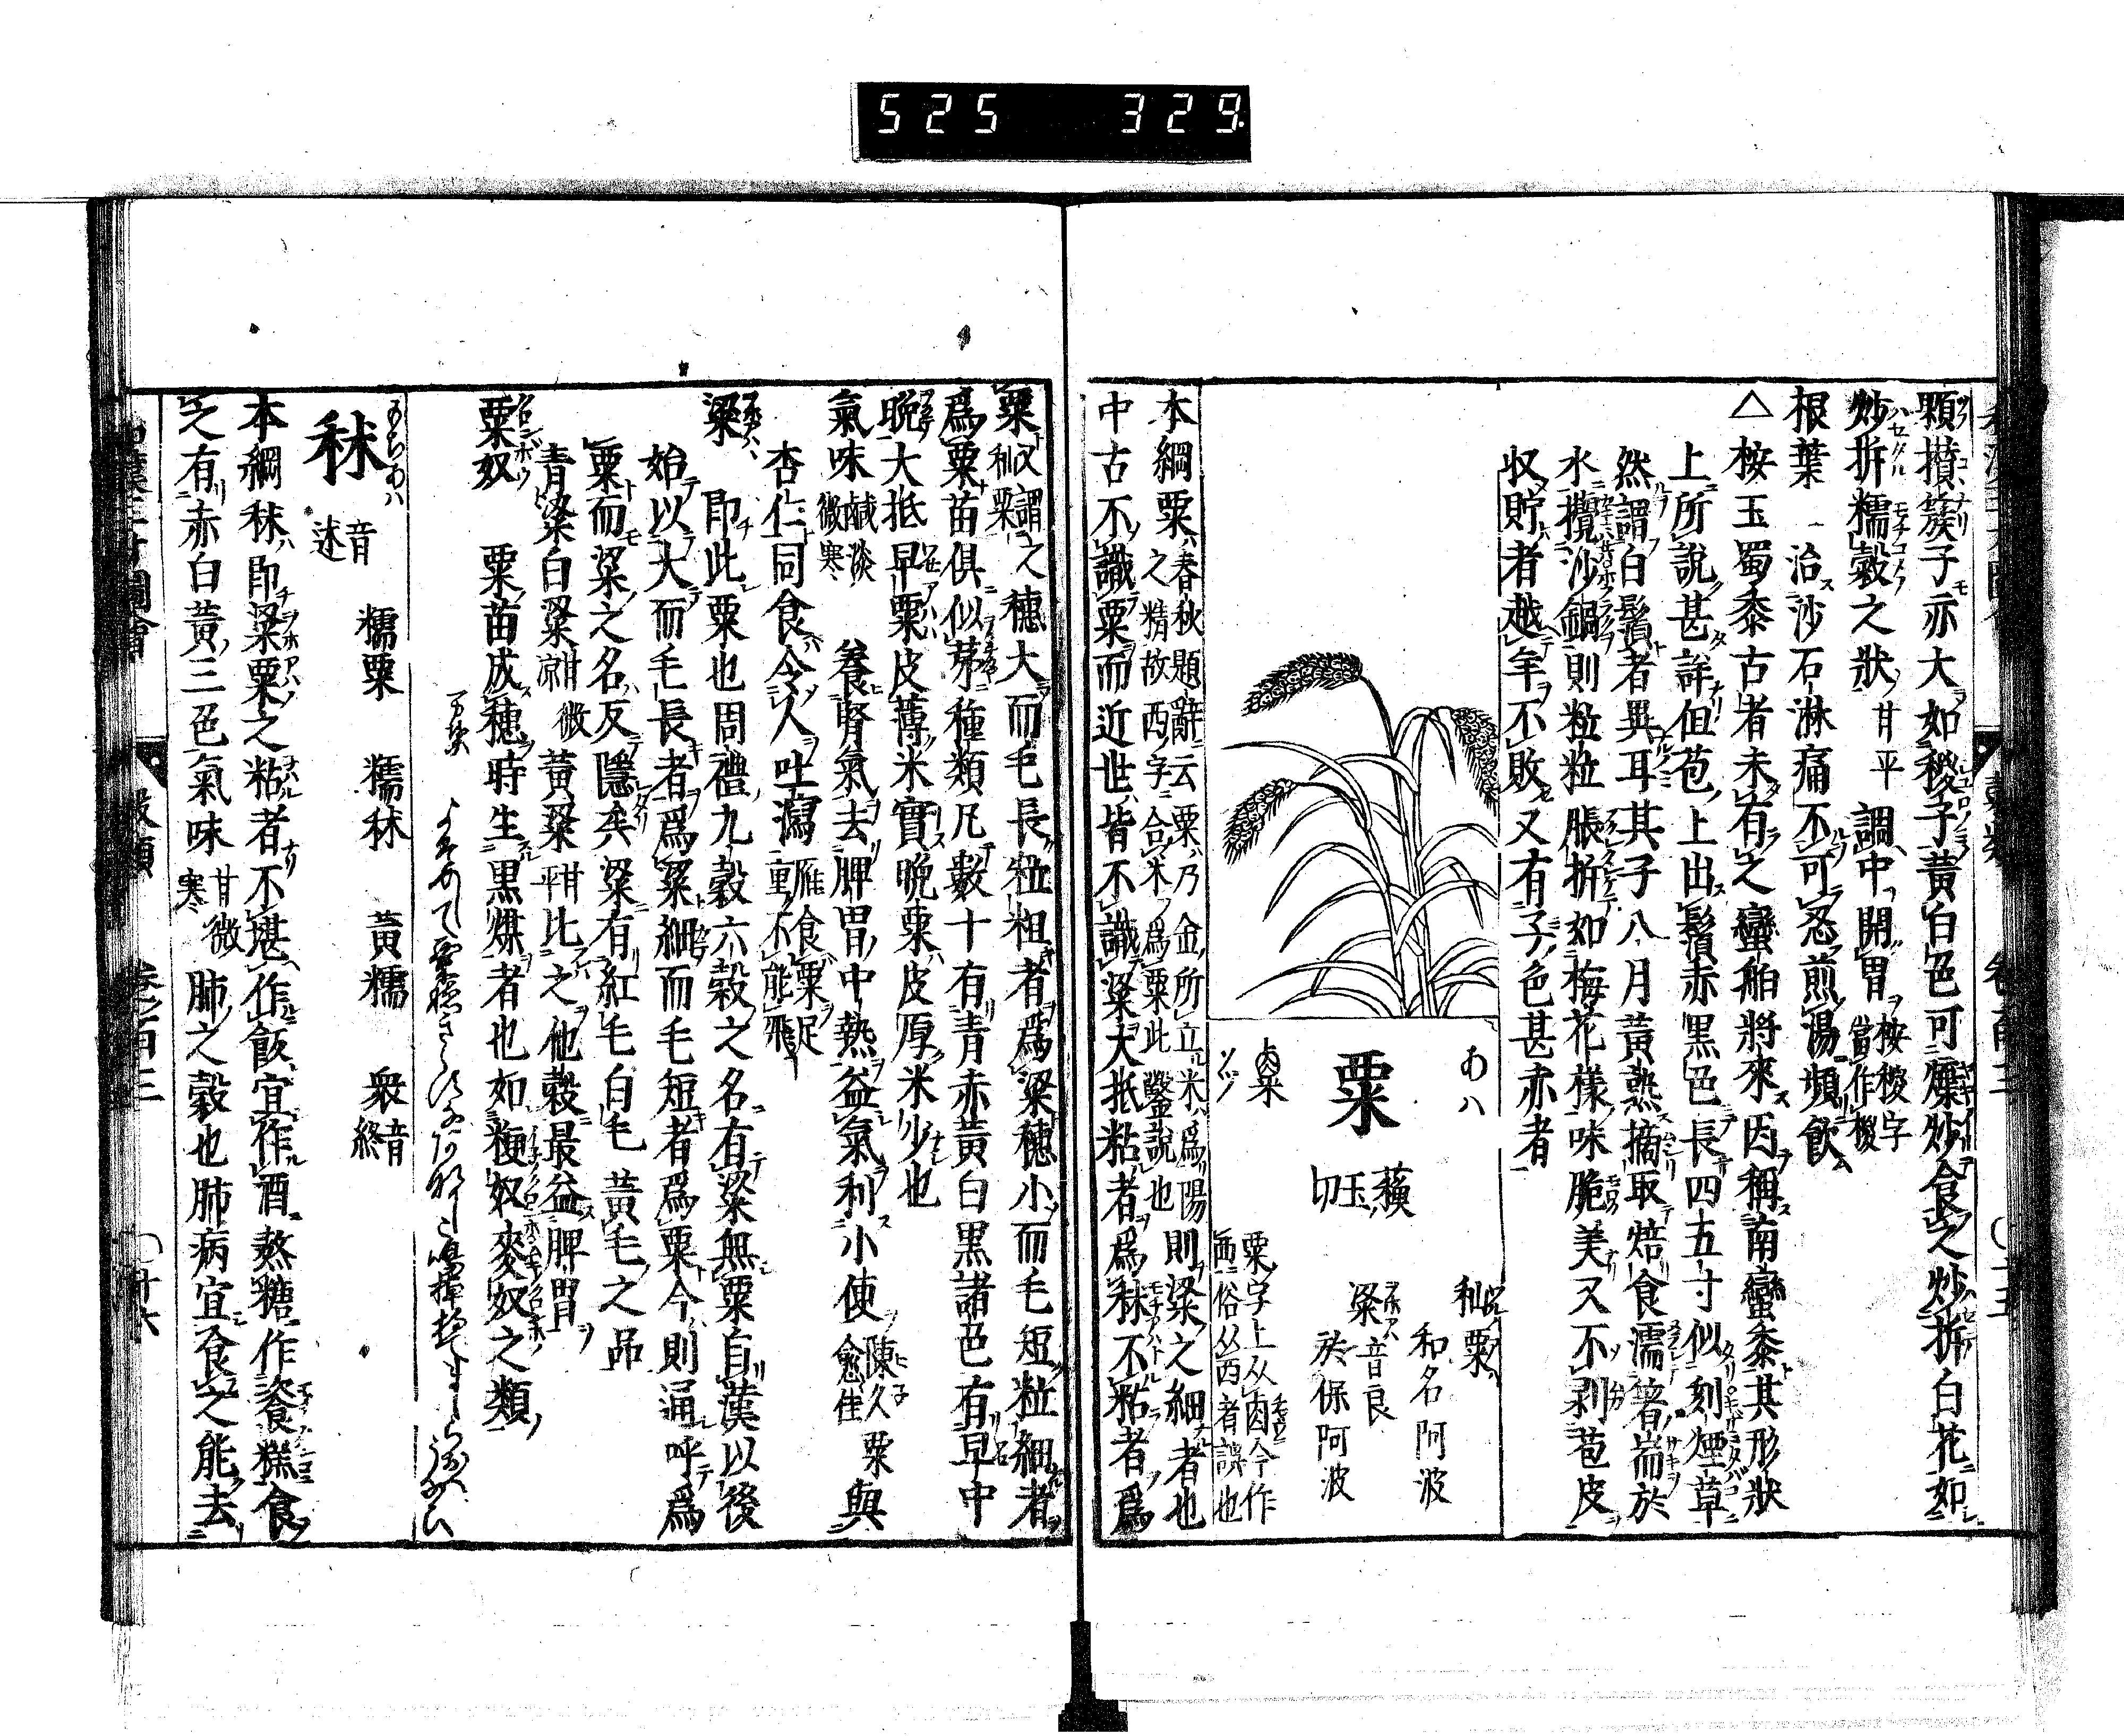 525 329
顆攅簇子亦大如稷子黄白色可煠炒食之炒拆白花如
炒拆糯穀之狀甘平 調中開胃按稷字當作椶
根葉 治沙石淋痛不可忍煎湯頻飲
△按玉蜀黍古者未有之蠻舶將來因稱南蠻黍其形狀
上所說甚詳但苞上出鬚赤黒色長四五寸似刻煙草
然謂白鬚者異耳其子八月黃熟摘取焙食濡箸耑於
水攪沙鍋則粒粒脹拆如梅花樣味脆美又不剥苞皮
収貯者越年不敗又有子色甚赤者
あハ
粟
蘓玉切
籼粟
和名阿波
粱 音良
於保阿波
粟字上从鹵今作
西俗从西者誤也
本綱粟春秋題辭云粟乃金所立米爲陽
之精故西字合米爲粟此鑿說也
則粱之細者也
中古不識粟而近世皆不識粱大抵粘者爲秫不粘者爲
粟又謂之籼粟穗大而毛長粒粗者爲粱穗小而毛短粒細者
爲粟苗俱似茅種類凡數十有青赤黄白黒諸色有早中
晚大抵早粟皮薄米實晚粟皮厚米少也
氣味鹹淡微寒 養腎氣去脾胃中熱益氣利小使陳久愈佳 粟與
杏仁同食令人吐瀉雁食粟足重不能飛
粱 即此粟也周禮九穀六穀之名有粱無粟自漢以後
始以大而毛長者爲粱細而毛短者爲粟今則通呼爲
粟而粱之名反隱矣粱有紅毛白毛黄毛之品
青粱白粱甘微凉黃粱甘平比之他穀最益脾胃
粟奴 粟苗成穗時生黒煤者也如粳奴麥奴之類
もちあハ
秫 音述
糯粟 糯秫 黄糯 衆音終
本綱秫即粱粟之粘者不堪作飯宜作酒熬糖作餈糕食
之有赤白黃三色氣味甘微寒 肺之穀也肺病宜食之能去